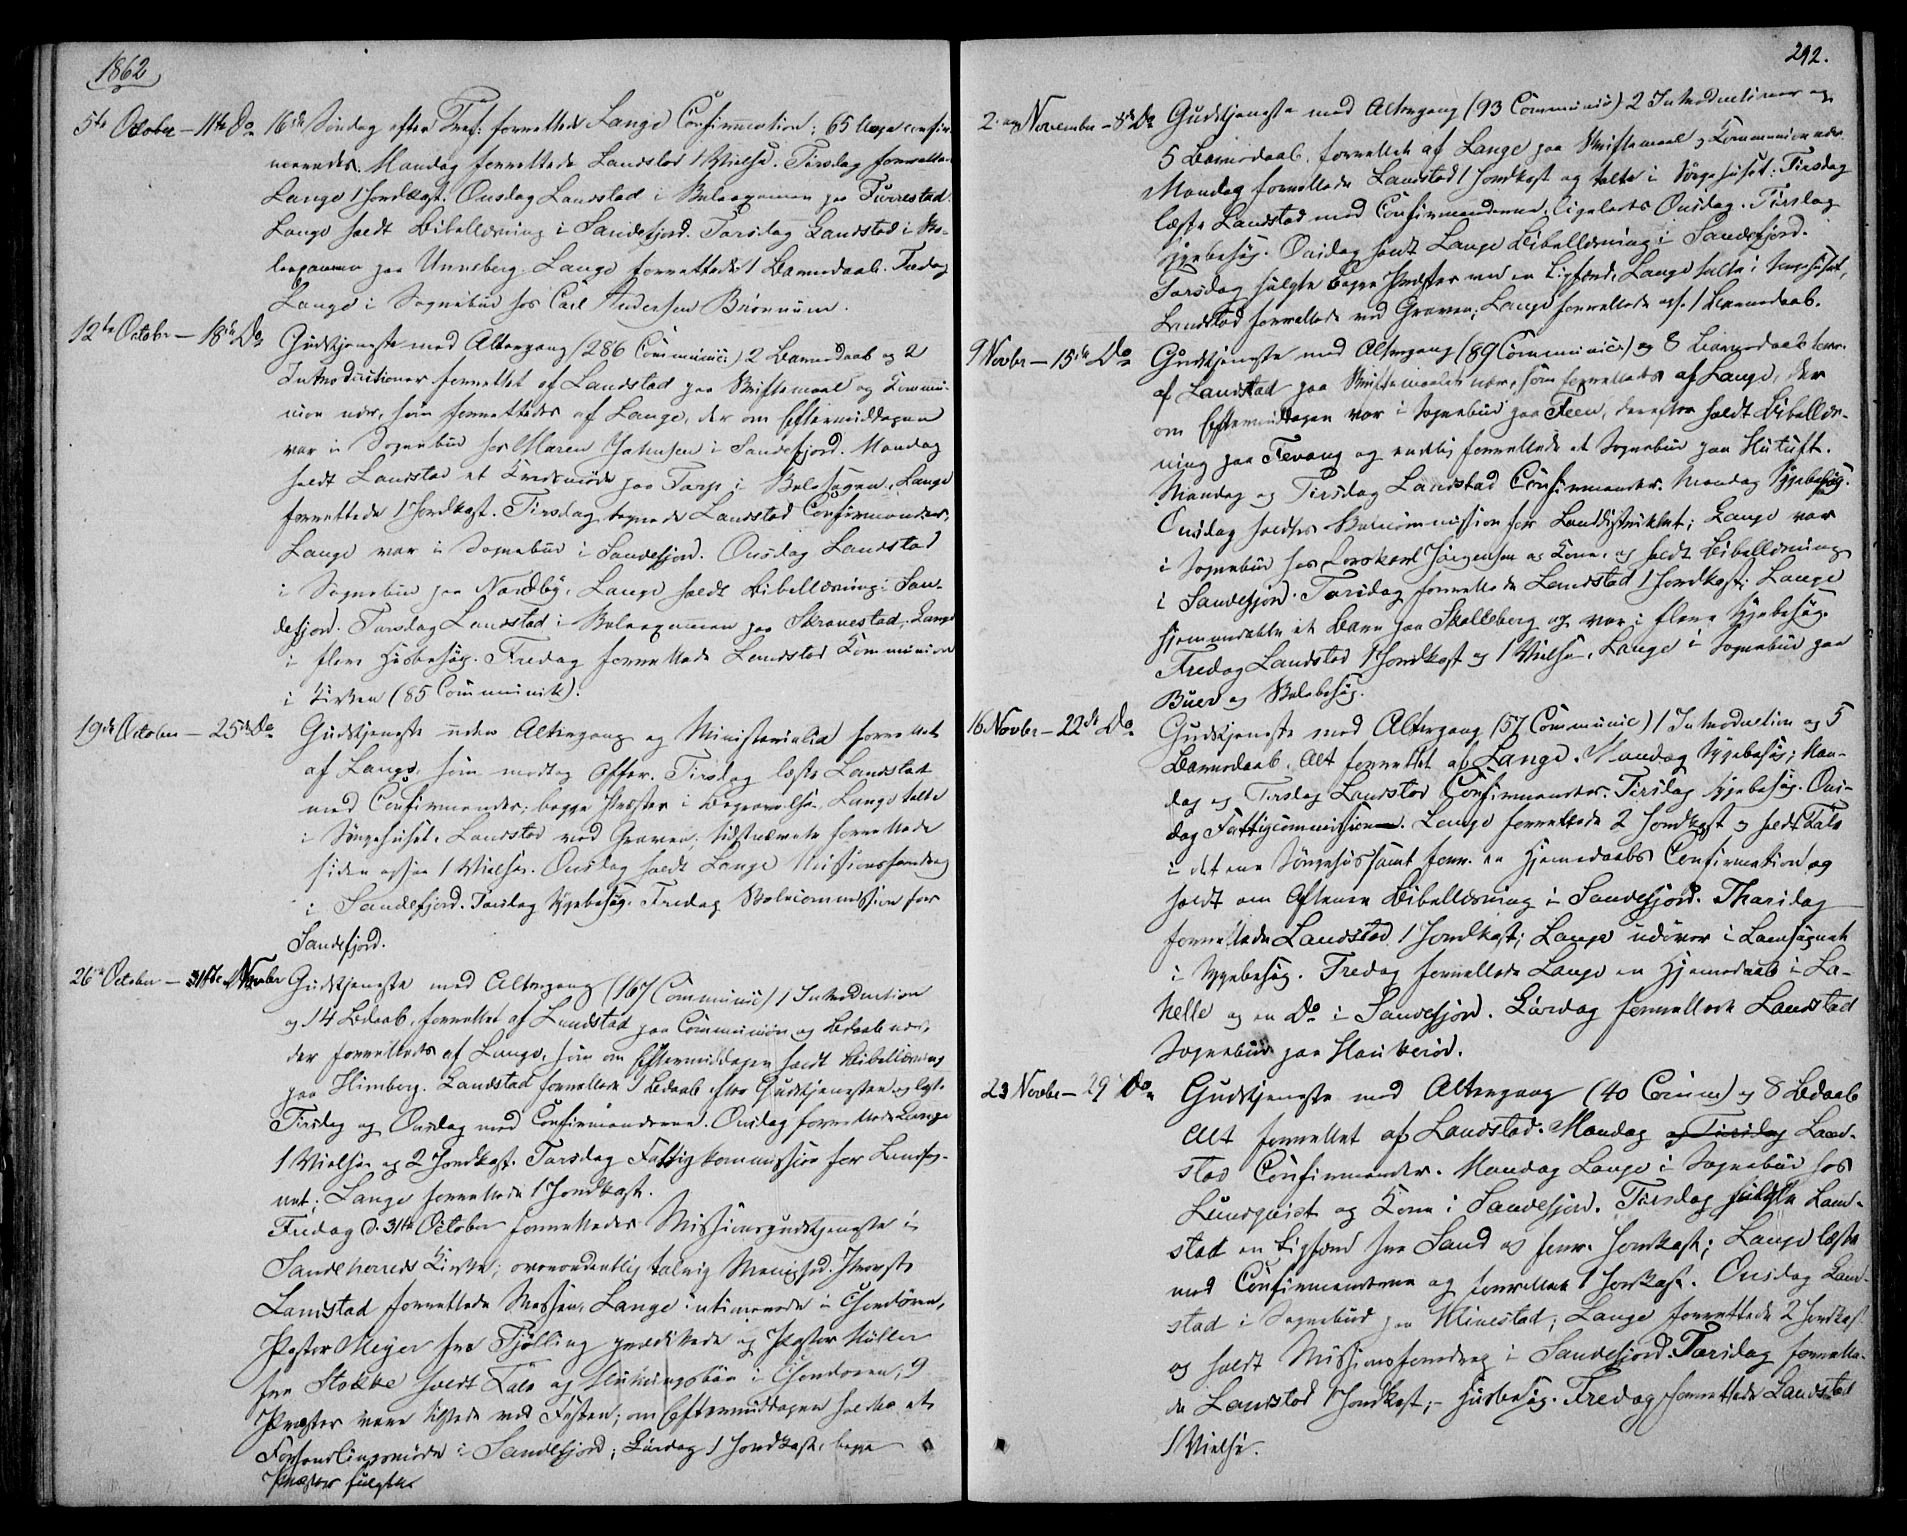 1862
5te October – 11te Do 16de Søndag efter Tref: forrettede Lange Confirmation; 65 Unge confir-
meredes. Mandag forrettede Landstad 1 Vielse. Tirsdag forrettede
Lange 1 Jordkast. Onsdag Landstad i Skoleexamen paa Furrestad.
Lange holdt Bibellæsning i Sandefjord. Torsdag Landstad i Sko-
leexamen paa Unneberg. Lange forrettede 1 Barnedaab. Fredag
Lange i Sognebud hos Carl Andersen Brønnum.
12te Octobr – 18de Do Gudstjeneste med Altergang (286 Communic:) 2 Barnedaab og 2
Introductioner forrettet af Landstad paa Skriftemaal og Commu-
nion nær, som forrettedes af Lange, der om Eftermiddagen
var i Sognebud hos Maren Johnsen i Sandefjord. Mandag
holdt Landstad et Kredsmøde paa Torp i Skolesagen. Lange
forrettede 1 Jordkast. Tirsdag Landstad Confirmander,
Lange var i Sognebud i Sandefjord. Onsdag Landstad
i Sognebud paa Nordby, Lange holdt Bibellæsning i San-
defjord. Torsdag Landstad i Skoleexamen paa Skravestad, Lange
i flere Husbesøg. Fredag forrettede Landstad Communion
i Kirken (85 Communik).
19de October – 25de Do Gudstjeneste uden Altergang og Ministerialia forrettet
af Lange, som modtog Offer. Tirsdag læste Landstad
med Confirmander; begge Præster i Begravelse. Lange talte
i Sørgehuset. Landstad ved Graven; sidstnævnte forrettede
siden ogsaa 1 Vielse. Onsdag holdt Lange Missionsforedrag
i Sandefjord. Torsdag Sygebesøg. Fredag Skolecommission for
Sandefjord.
26de October – 31te Novbr Gudstjeneste med Altergang (167 Communic) 1 Introduction
og 14 Bdaab, forrettet af Landstad paa Communion og Bdaab nær,
der forrettedes af Lange, som om Eftermiddagen holdt Bibellæsning
paa Himberg. Landstad forrettede 1 Bdaab efter Gudstjenesten og læste
Tirsdag og Onsdag med Confirmanderne. Onsdag forrettede Lange
1 Vielse og 2 Jordkast. Torsdag Fattigkommission for Landsog-
net; Lange forrettede 1 Jordkast.
Fredag d. 31te October forrettedes Missionsgudstjeneste i
Sandeherreds Kirke; overordentlig talrig Menighed. Provst
Landstad forrettede Messen, Lange intimerede i Chordøren,
Pastor Meyer fra Tjølling prædikede og Pastor Müller
fra Stokke holdt Tale og Slutningsbøn i Chordøren; 9
Præster vare tilstede ved Festen; om Eftermiddagen holdtes et
Forhandlingsmøde i Sandefjord; Lørdag 1 Jordkast, begge
Præster fulgte
292.
2. November – 8de Do Gudstjeneste med Altergang (93 Communic) 2 Introductioner og
5 Barnedaab, forrettet af Lange paa Skriftemaal og Kommunion nær.
Mandag forrettede Landstad 1 Jordkast og talte i Sørgehuset; Tirsdag
læste Landstad med Confirmanderne, ligeledes Onsdag. Tirsdag
Sygebesøg. Onsdag holdt Lange Bibellæsning i Sandefjord.
Torsdag fulgte begge Præster med en Ligfærd, Lange talte i Sørgehuset,
Landstad forrettede ved Graven; Lange forrettede ogs. 1 Barnedaab.
9 Novbr – 15de Do Gudstjeneste med Altergang (89 Communic:) og 8 Barnedaab forr.
af Landstad paa Skriftemaalet nær, som forrettedes af Lange, der
om Eftermiddagen var i Sognebud paa Feen, derefter holdt Bibellæs-
ning paa Fevang og endelig forrettede et Sognebud paa Hutuft.
Mandag og Tirsdag Landstad Confirmander. Mandag Sygebesøg.
Onsdag holdtes Skolecommission for Landdistriktet; Lange var
i Sognebud hos Jørgensen og Kone, og holdt Bibellæsning
i Sandefjord. Torsdag forrettede Landstad 1 Jordkast; Lange
hjemmedøbte et Barn paa Skolleberg og var i flere Sygebesøg.
Fredag Landstad 1 Jordkast og 1 Vielse, Lange i Sognebud paa
Buer og Skolebesøg.
16 Novbr – 22de Do Gudstjeneste med Altergang (57 Communic) 1 Introduction og 5
Barnedaab, Alt forrettet af Lange. Mandag Sygebesøg; Man-
dag og Tirsdag Landstad Confirmander. Tirsdag Sygebesøg. Ons-
dag Fattigcommission. Lange forrettede 2 Jordkast og holdt Tale
i det ene Sørgehus samt forr. en Hjemedaabs Confirmation og
holdt om Aftenen Bibellæsning i Sandefjord. Thorsdag
forrettede Landstad 1 Jordkast; Lange udover i Landsognet
i Sygebesøg. Fredag forrettede Lange en Hjemedaab i La-
helle og en Do i Sandefjord. Lørdag forrettede Landstad
Sognebud paa Haukerød.
23 Novbr – 29 Do Gudstjeneste med Altergang (40 Comm) og 8 Bdaab
Alt forrettet af Landstad. Mandag og Tirsdag Land-
stad Confirmander. Mandag Lange i Sognebud hos
Lundqvist og Kone i Sandefjord. Tirsdag fulgte Land-
stad en Ligfærd fra Sand og forr. Jordkast; Lange læste
med Confirmanderne og forrettet 1 Jordkast. Onsdag Land-
stad i Sognebud paa Klinestad; Lange forrettede 2 Jordkast
og holdt Missionsforedrag i Sandefjord. Torsdag forrette-
de Landstad 1 Jordkast; – Husbesøg. Fredag forrettede Landstad
1 Vielse.